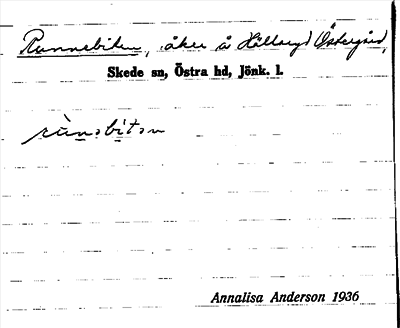 Runnebiten, åker å Hålleryd Östergård,
Skede sn, Östra hd, Jönk. l.
rùnəbìtən
Annalisa Anderson 1936